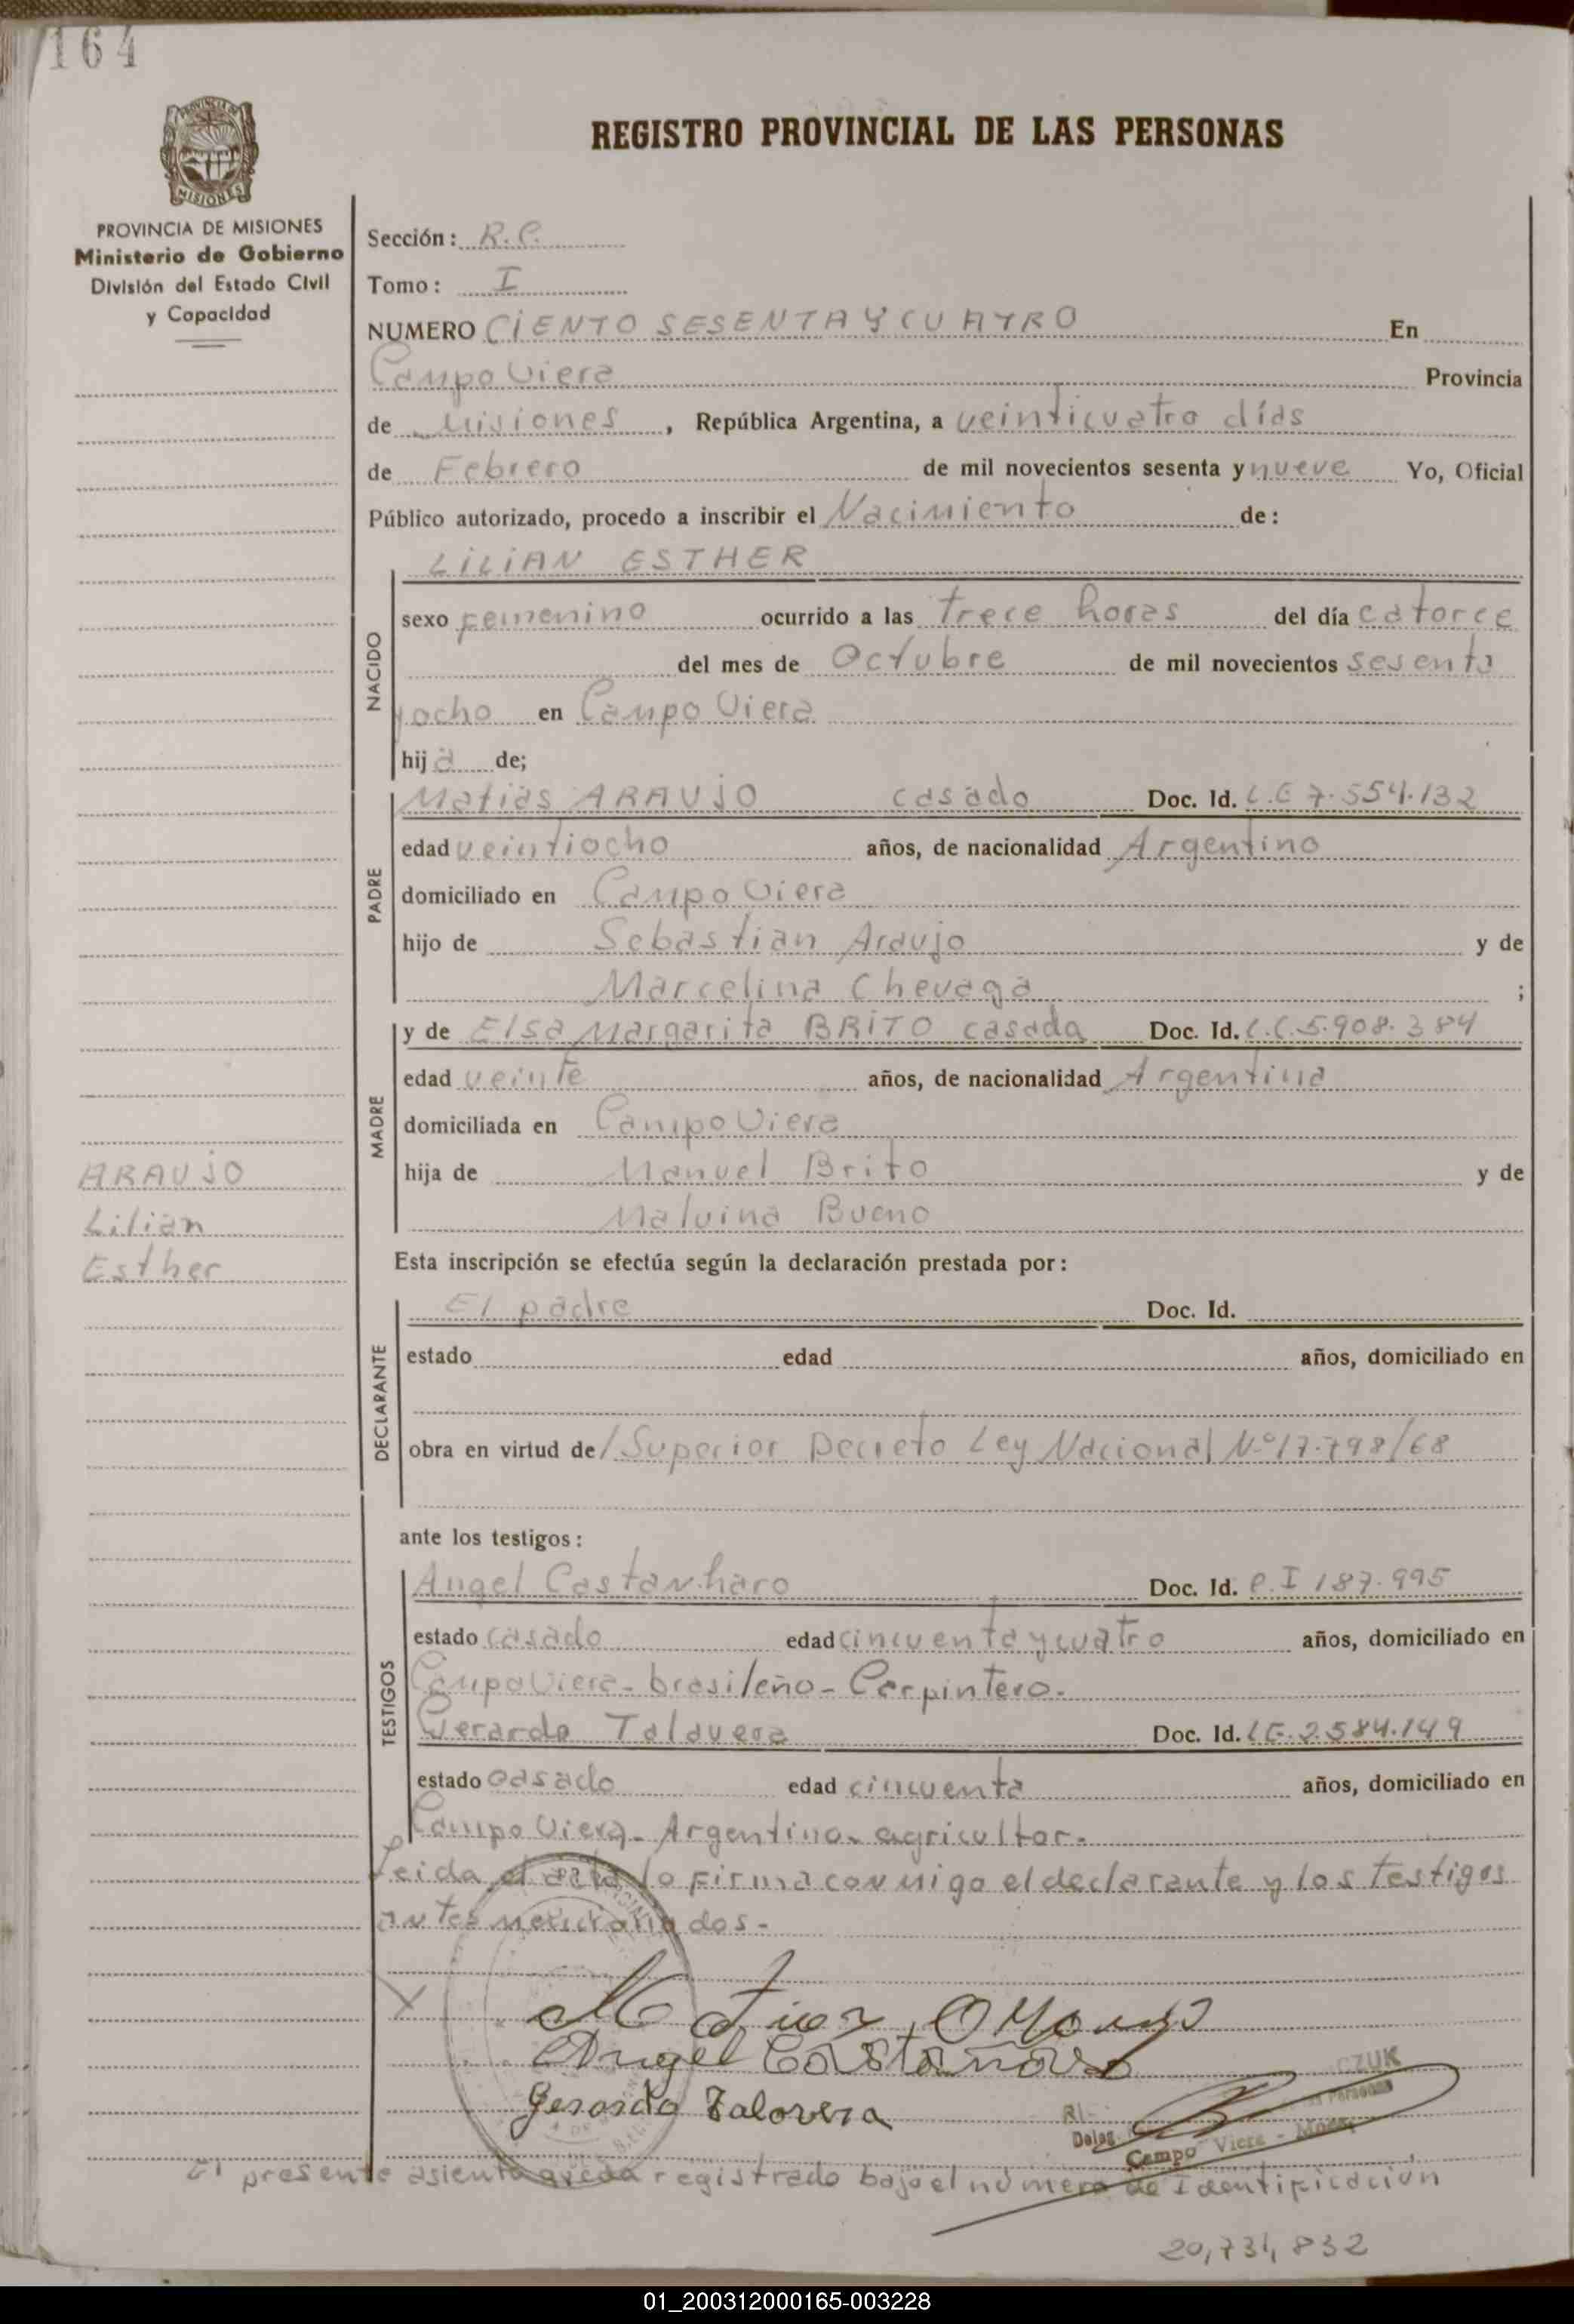 164
REGISTRO PROVINCIAL DE LAS PERSONAS
MISIONES
PROVINCIA DE MISIONES
Ministerio de Gobierno
División del Estado Civil
y Capacidad
Sección: R.C.
Tomo: I
NUMERO CIENTO SESENTA Y CUATRO En
Campo Viera Provincia
de Misiones, República Argentina, a veinticuatro días
de Febrero de mil novecientos sesenta y nueve Yo, Oficial
Público autorizado, procedo a inscribir el Nacimiento de:
NACIDO
LILIAN ESTHER
sexo femenino ocurrido a las trece horas del día catorce
del mes de Octubre de mil novecientos sesenta
y ocho en Campo Viera
hija de;
PADRE
Matias ARAUJO casado Doc. Id. L.E 7.554.132
edad veintiocho años, de nacionalidad Argentino
domiciliado en Campo Viera
hijo de Sebastian Araujo y de
Marcelina Chevaga ;
MADRE
y de Elsa Margarita BRITO casada Doc. Id. L.C.5.908.384
edad veinte años, de nacionalidad Argentina
domiciliada en Campo Viera
hija de Manuel Brito y de
Malvina Bueno
ARAUJO
Lilian
Esther
Esta inscripción se efectúa según la declaración prestada por:
DECLARANTE
El padre Doc. Id.
estado edad años, domiciliado en
obra en virtud de/ Superior Decreto Ley Nacional N.º 17.798/68
ante los testigos:
TESTIGOS
Angel Castanharo Doc. Id. C.I 187.995
estado casado edad cincuenta y cuatro años, domiciliado en
Campo Viera- brasileño- Carpintero-
Gerardo Talavera Doc. Id. L.E.2.584.149
estado casado edad cincuenta años, domiciliado en
Campo Viera- Argentino- agricultor-
Leida el acta lo firma conmigo el declarante y los testigos
antes mencionados-
Angel Castañaro
Gerardo Talavera
CZUK
Campo Viera -
El presente asiento queda registrado bajo el número de Identificación
20,731,832
01_200312000165-003228